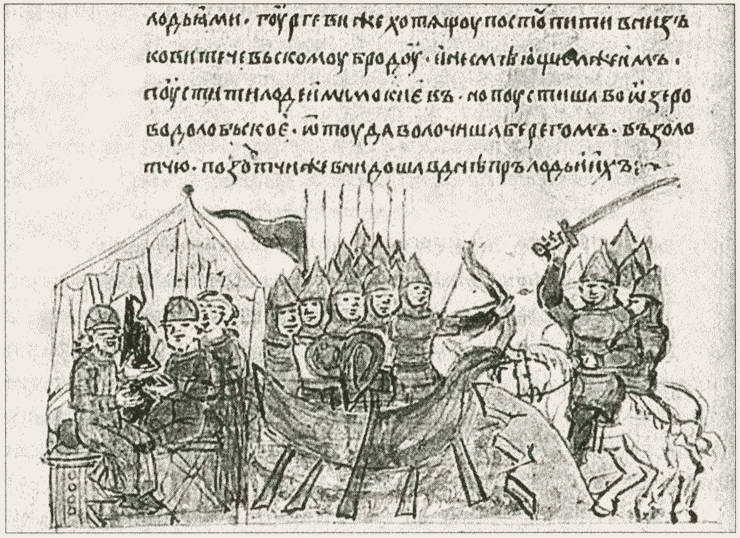 лодьꙗми · гоургеви же хотѧщоу постоупити внизъ
ко витечевьскомоу бродоу · и не смѣющим же им ·
поустити лодеи мимо києвъ · но поустиша во ѡзеро
во долобьскоє · ѿтоуда волочиша берегомъ · въ золо
тчю · по золотчи же внидоша в днѣпръ лодьи ихъ :